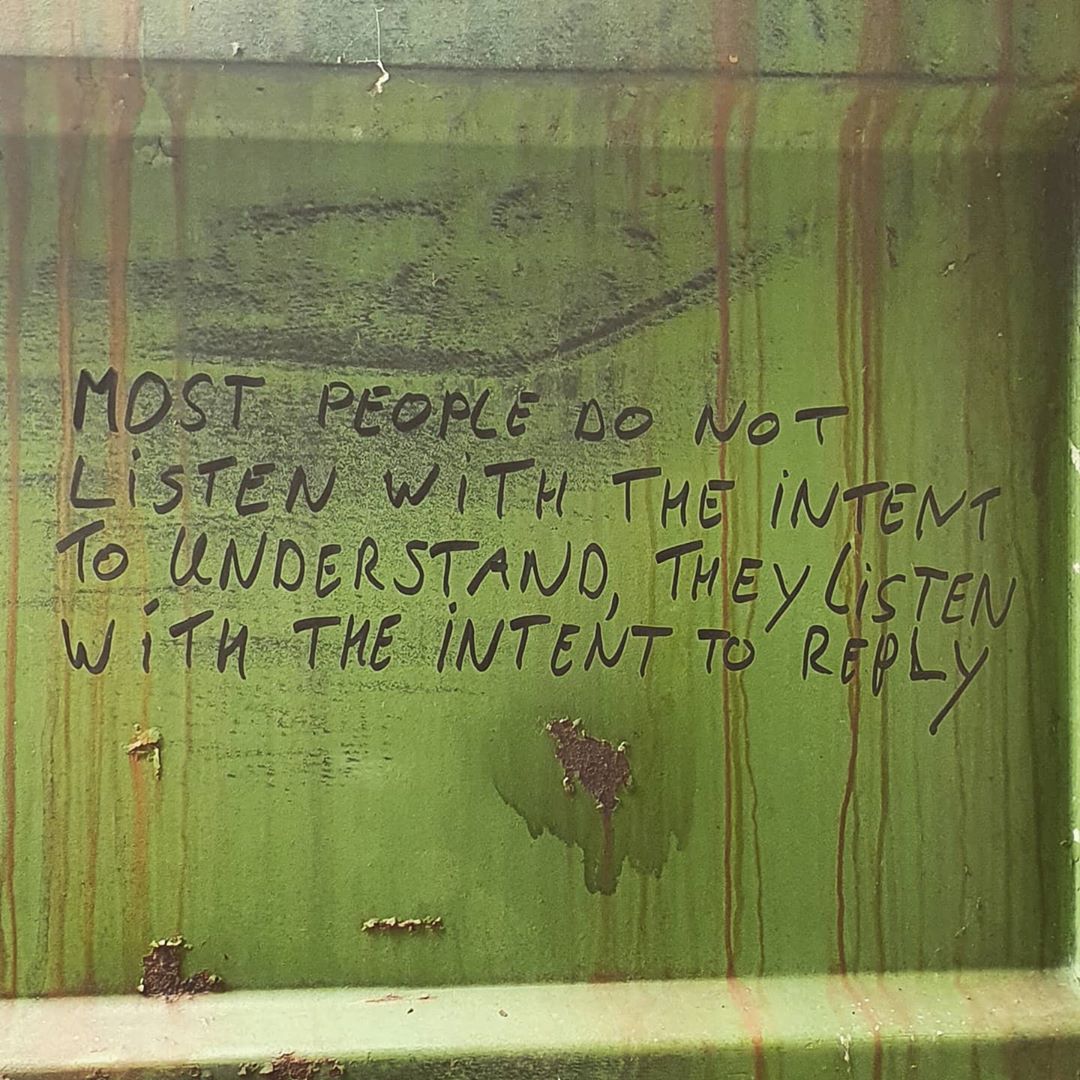 MOST PEOPLE DO NOT
LiSTEN WiTH THE iNTENT
TO UNDERSTAND, THEY LiSTEN
WiTH THE iNTENT TO REPLY